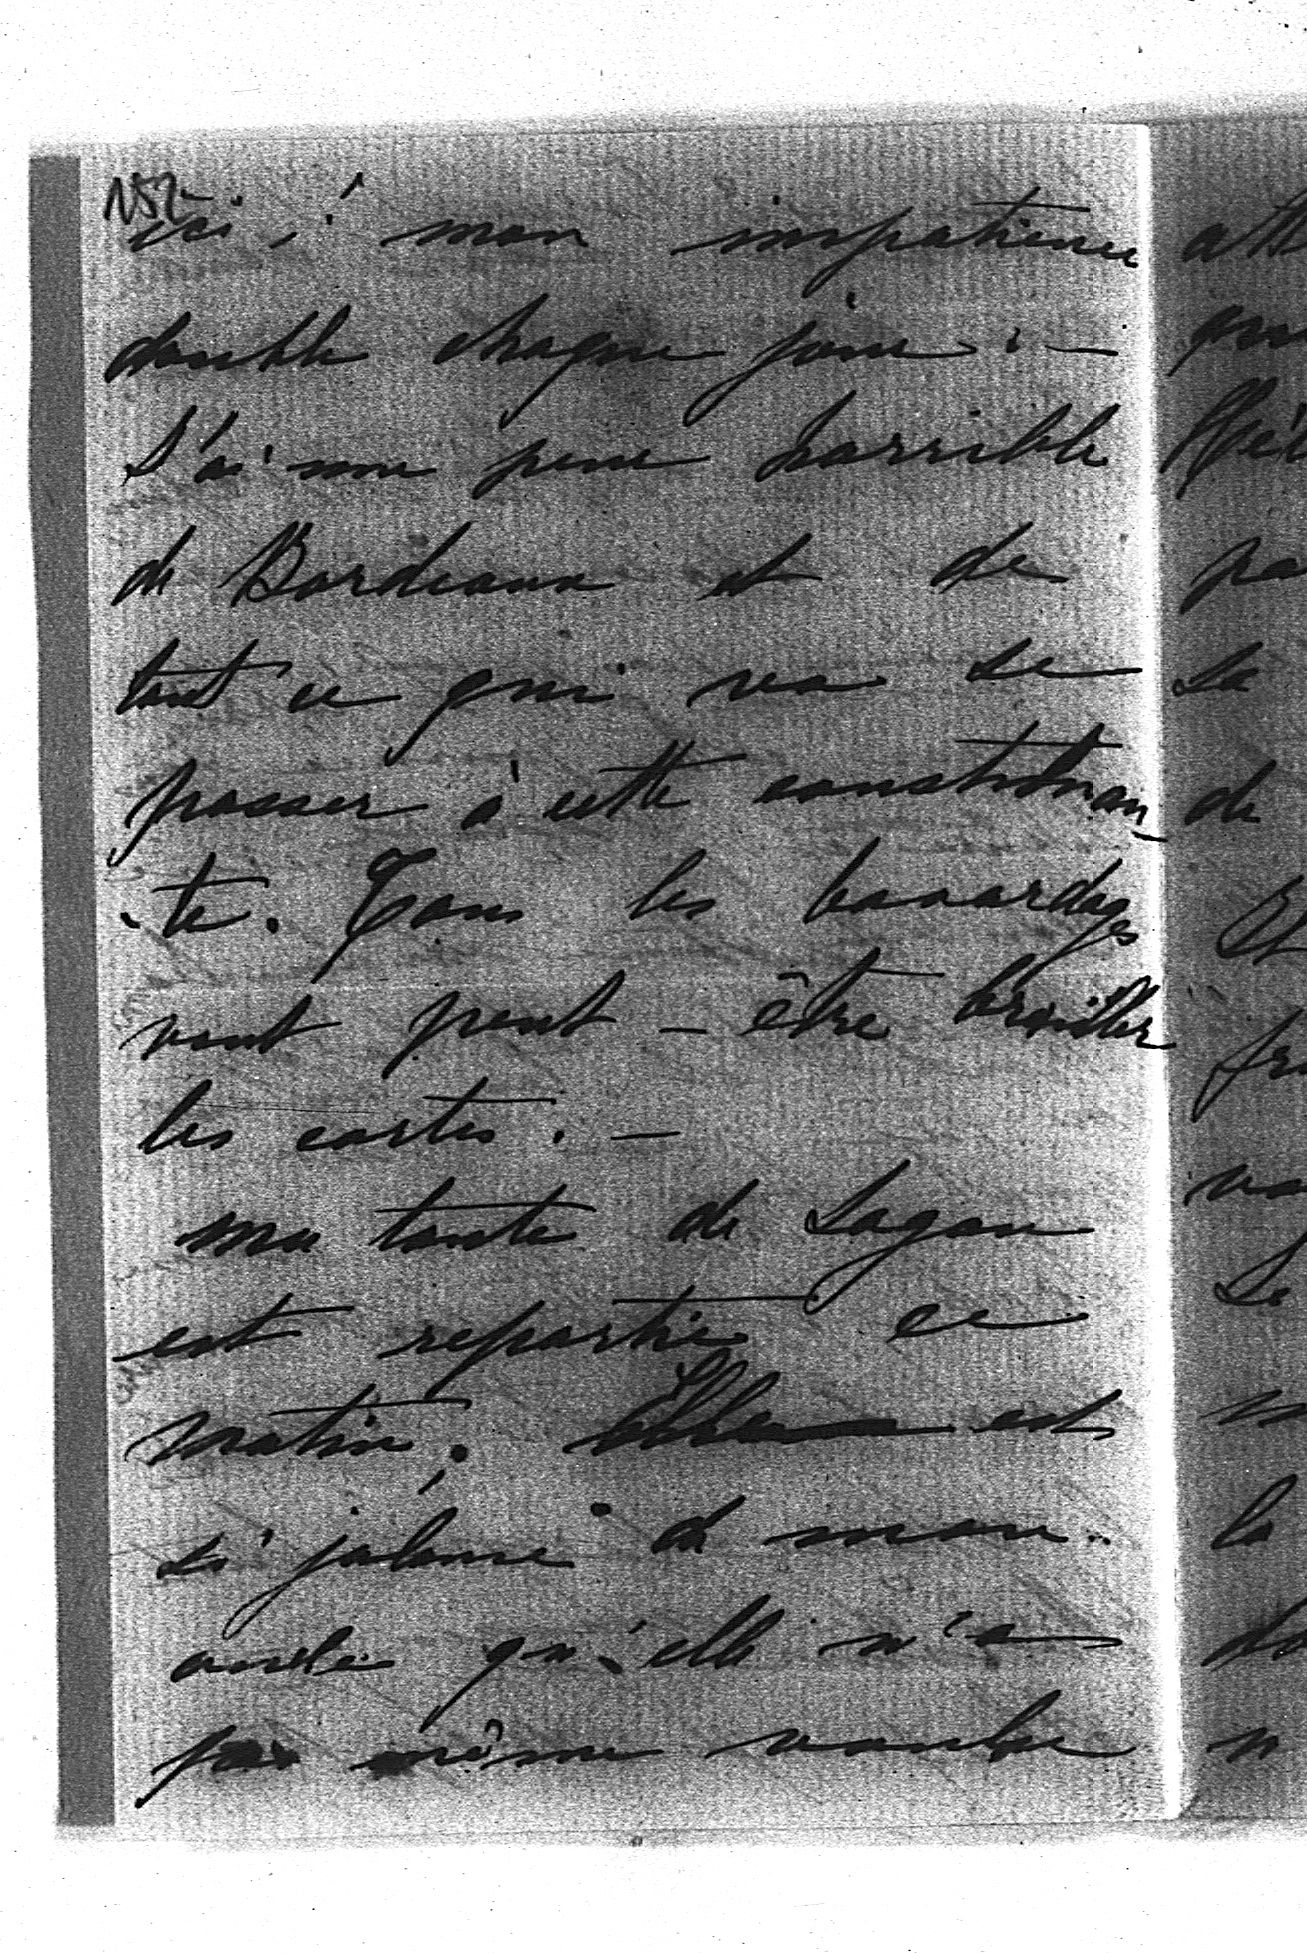 ici ! mon impatience
double chaque jour : —
J'ai une peur horrible
de Bordeaux et de
tout ce qui va se
passer à cette
-te. Tous les bavardages
vont peut-être brouiller
les cartes. —
ma tante de Lagau
est repartie ce
matin. Elle est
si jalouse de mon
oncle qu'elle n'a
pas même voulu